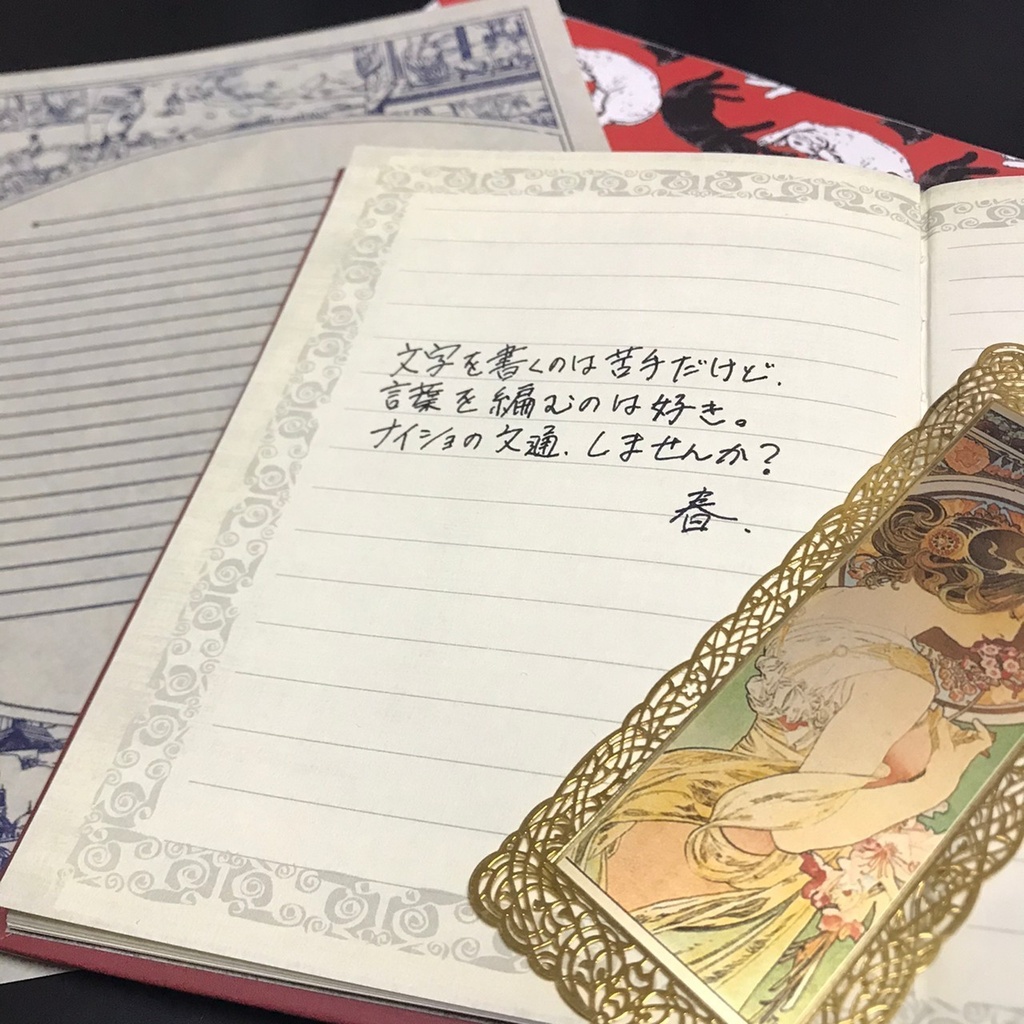 文字を書くのは苦手だけど.
言葉を編むのは好き。
ナイショの文通.しませんか?
春.